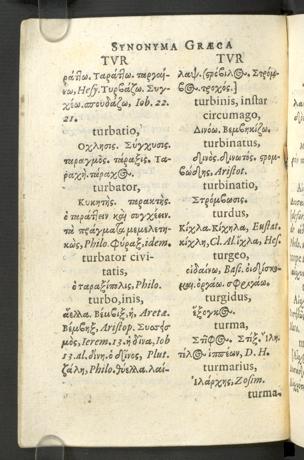 SYNONYMA GRÆCA
TVR
ράτ]ω. Ταράτ]ω. ταργαί-
νω, Hesy. Τυρβάζω. Συγ-
χέω. σπουδάζω, Iob. 22.
21.
turbatio,
Οχλησις. Σύγχυσις.
παραγμὸς. τάραξις. Τα-
ραχή. τάραχος.
turbator,
Κυκητὴς. ταρακτὴς.
ὁ ταράτ]ειν καὶ συγχέειν
τὰ πράγματα μεμελετη-
κὼς, Philo. Φύραξ, idem.
turbator civi-
tatis,
ὁ ταραξίπολις, Philo.
turbo, inis,
ἄελλα. Βέμβιξ, ἡ, Aretæ.
Βέμβηξ, Aristop. Συσσησ-
μὸς, Ierem. 13. ἡ δίνα, Iob
13. al. δίνη. ὁ δῖνος, Plut.
ζάλη, Philo. θύελλα. λαί-
TVR
λαψ. ςρόβιλος. Στρόμ-
βος. τροχὸς.]
turbinis, instar
circumago,
Δινόω. Βεμβηκίζω.
turbinatus,
δινὸς. δινωτὸς. ςρομ-
βώδης, Aristot.
turbinatio,
Στρόμβωσις.
turdus,
Κίχλα. Κίχηλα, Eustat.
κίχλη, Cl. Al. ἰχλα, Hes.
turgeo,
οἰδαίνω, Basi.
ὀργάω. σφριγάω.
turgidus,
ἔξογκος.
turma,
Στῖφος. Στίξ. Ἴλη.
τίλος ἱππέων, D. H.
turmarius,
Ἰλάρχης, Zosim.
turma-